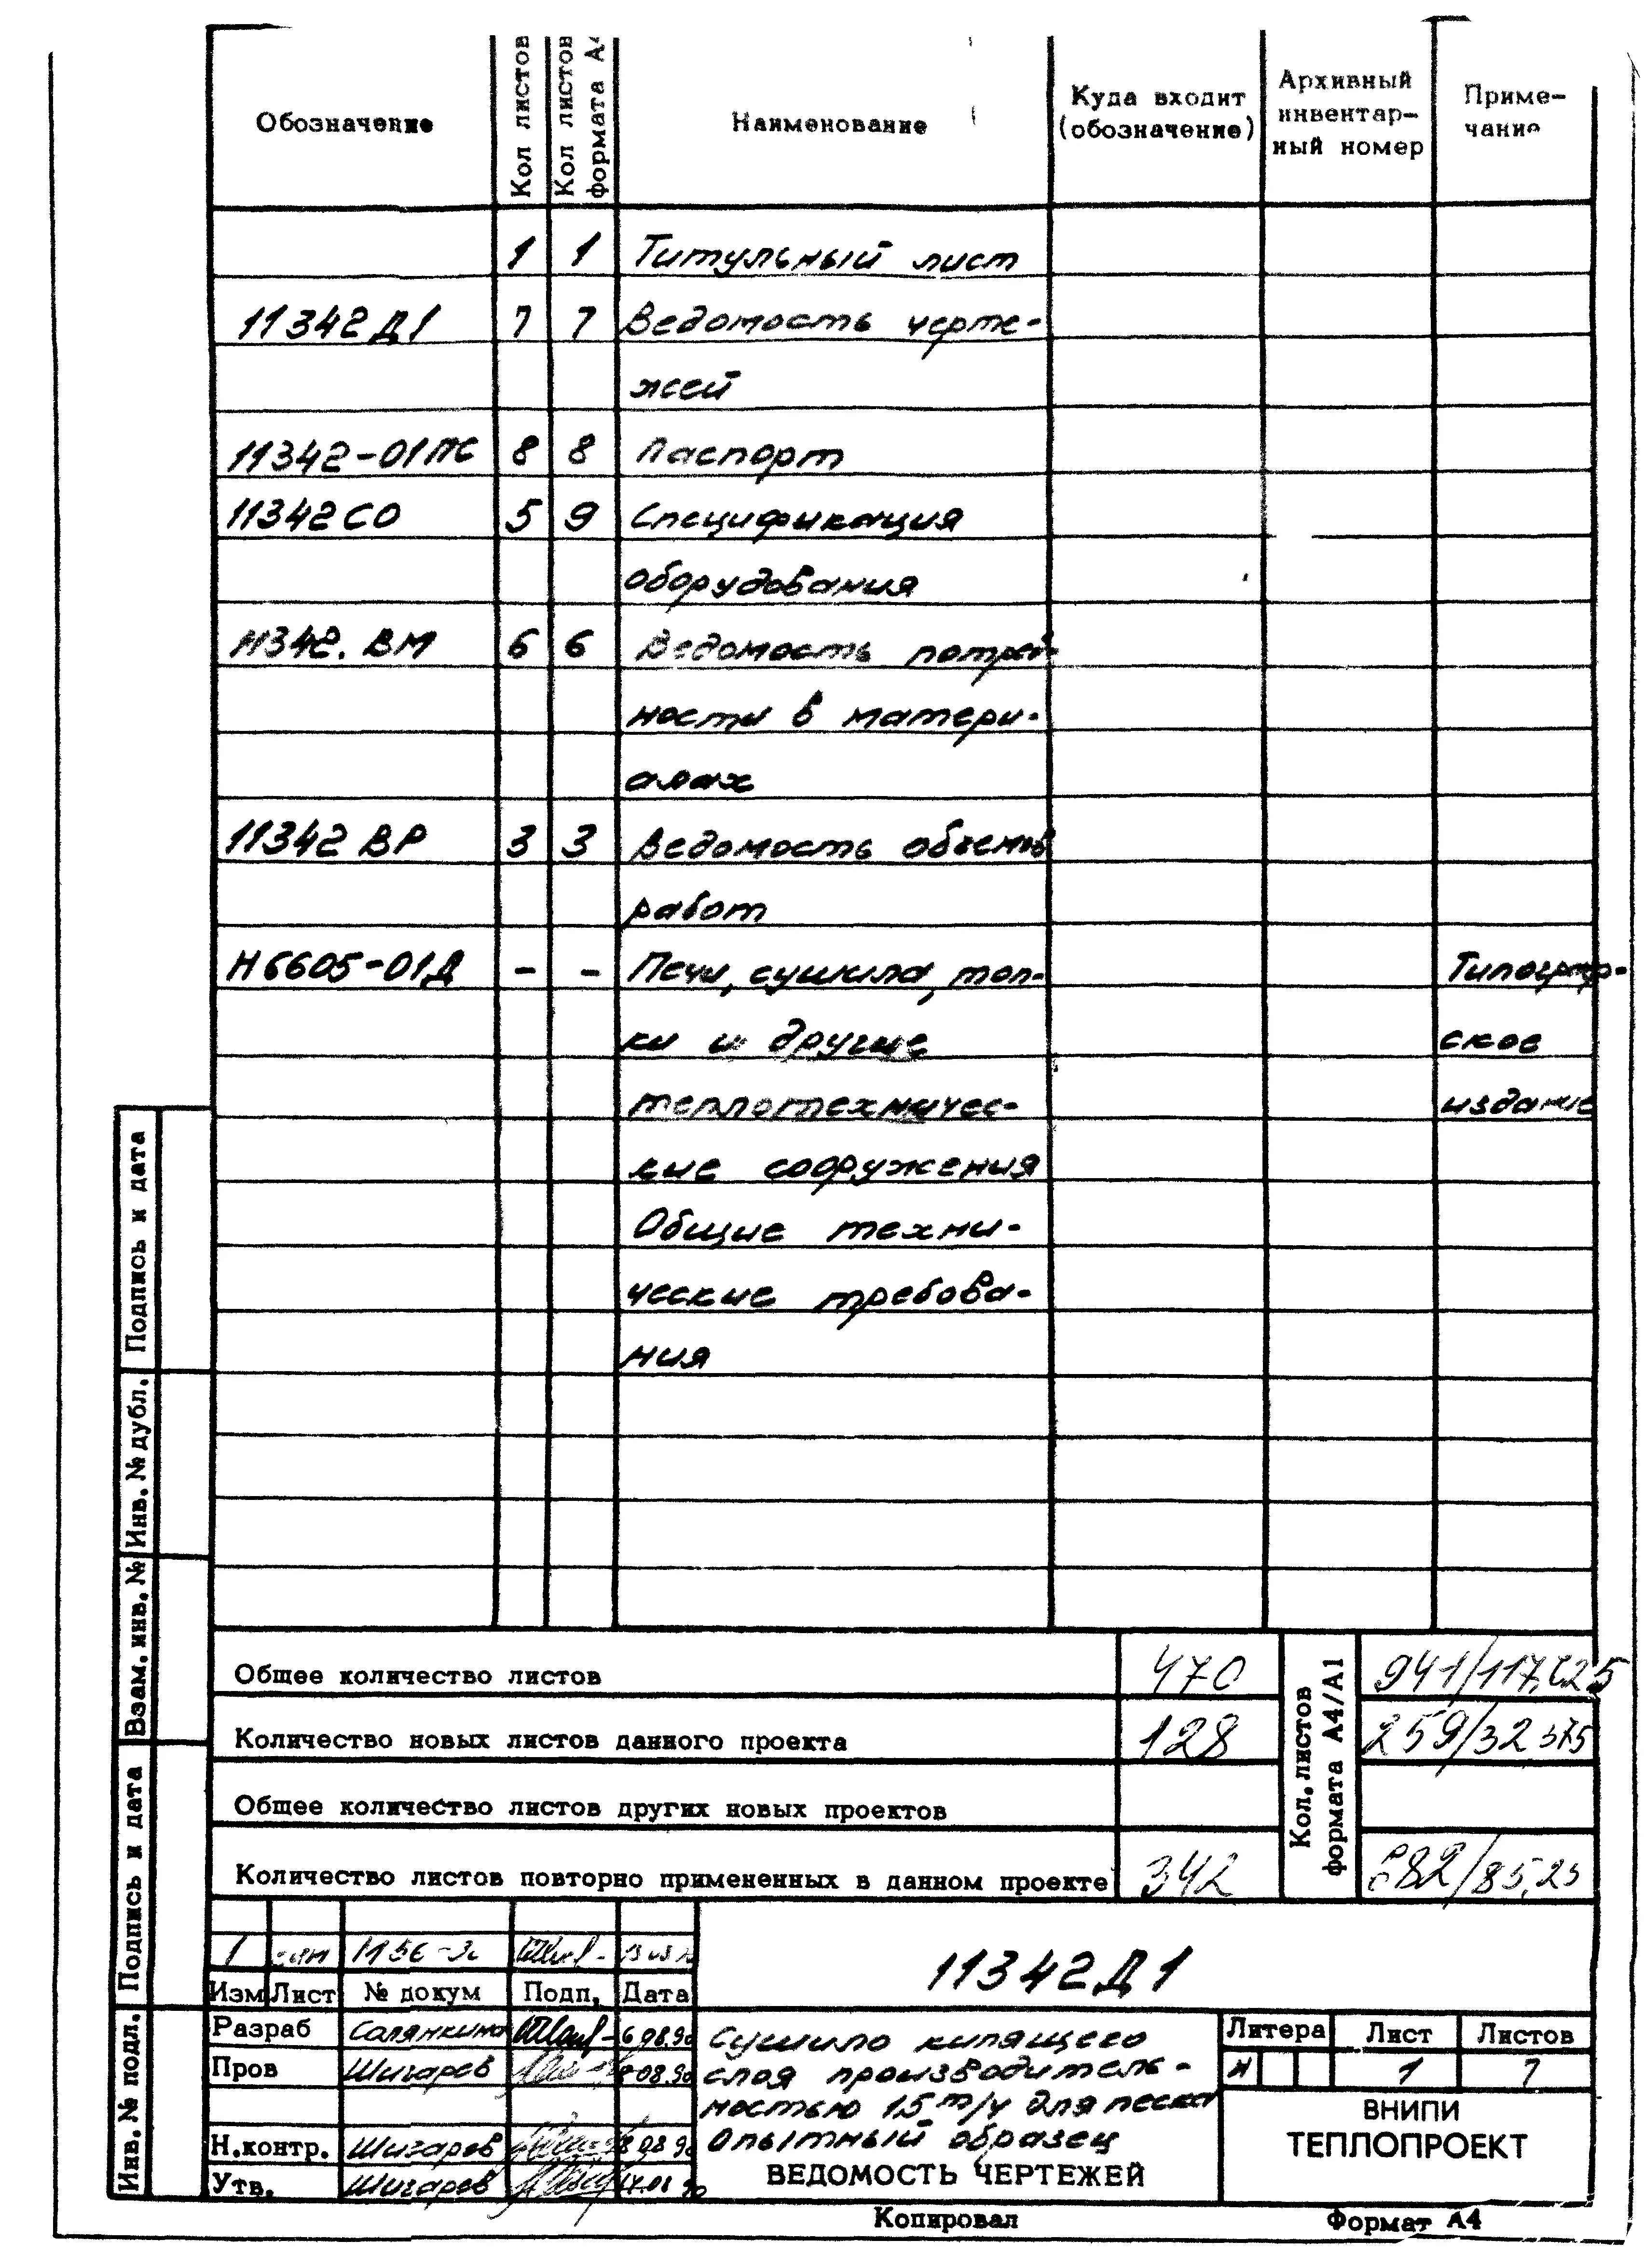 Обозначение
Кол листов
Кол листов
формата А4
Наименование
Куда входит
(обозначение)
Архивный
инвентар-
ный номер
Приме-
чание
1 1 Титульный лист
11342Д1 7 7 Ведомость черте-
жей
11342-01ПС 8 8 Паспорт
11342СО 5 9 Спецификация
оборудования
11342.ВМ 6 6 Ведомость потреб-
ности в матери-
алах
11342 ВР 3 3 Ведомость объемов
работ
Н6605-01Д - - Печи, сушила, топ- Типограф-
ки и другие ское
теплотехничес- издание
кие сооружения
Общие техни-
ческие требова-
ния
Общее количество листов 470 941/117,625
Количество новых листов данного проекта 128 259/32 375
Общее количество листов других новых проектов
Количество листов повторно примененных в данном проекте 342 682/85,25
Кол. листов
формата А4/А1
1
Изм Лист № докум Подп. Дата
Разраб Салянкина 6.08.90
Пров Шигарев 08.90
Н.контр. Шигарев 08 90
Утв. Шигарев
11342Д1
Сушило кипящего
слоя производитель-
ностью 15 т/ч для песка
Опытный образец
ВЕДОМОСТЬ ЧЕРТЕЖЕЙ
Литера Лист Листов
И 1 7
ВНИПИ
ТЕПЛОПРОЕКТ
Копировал Формат А4
Подпись и дата
Инв. № дубл.
Взам. инв. №
Подпись и дата
Инв. № подл.